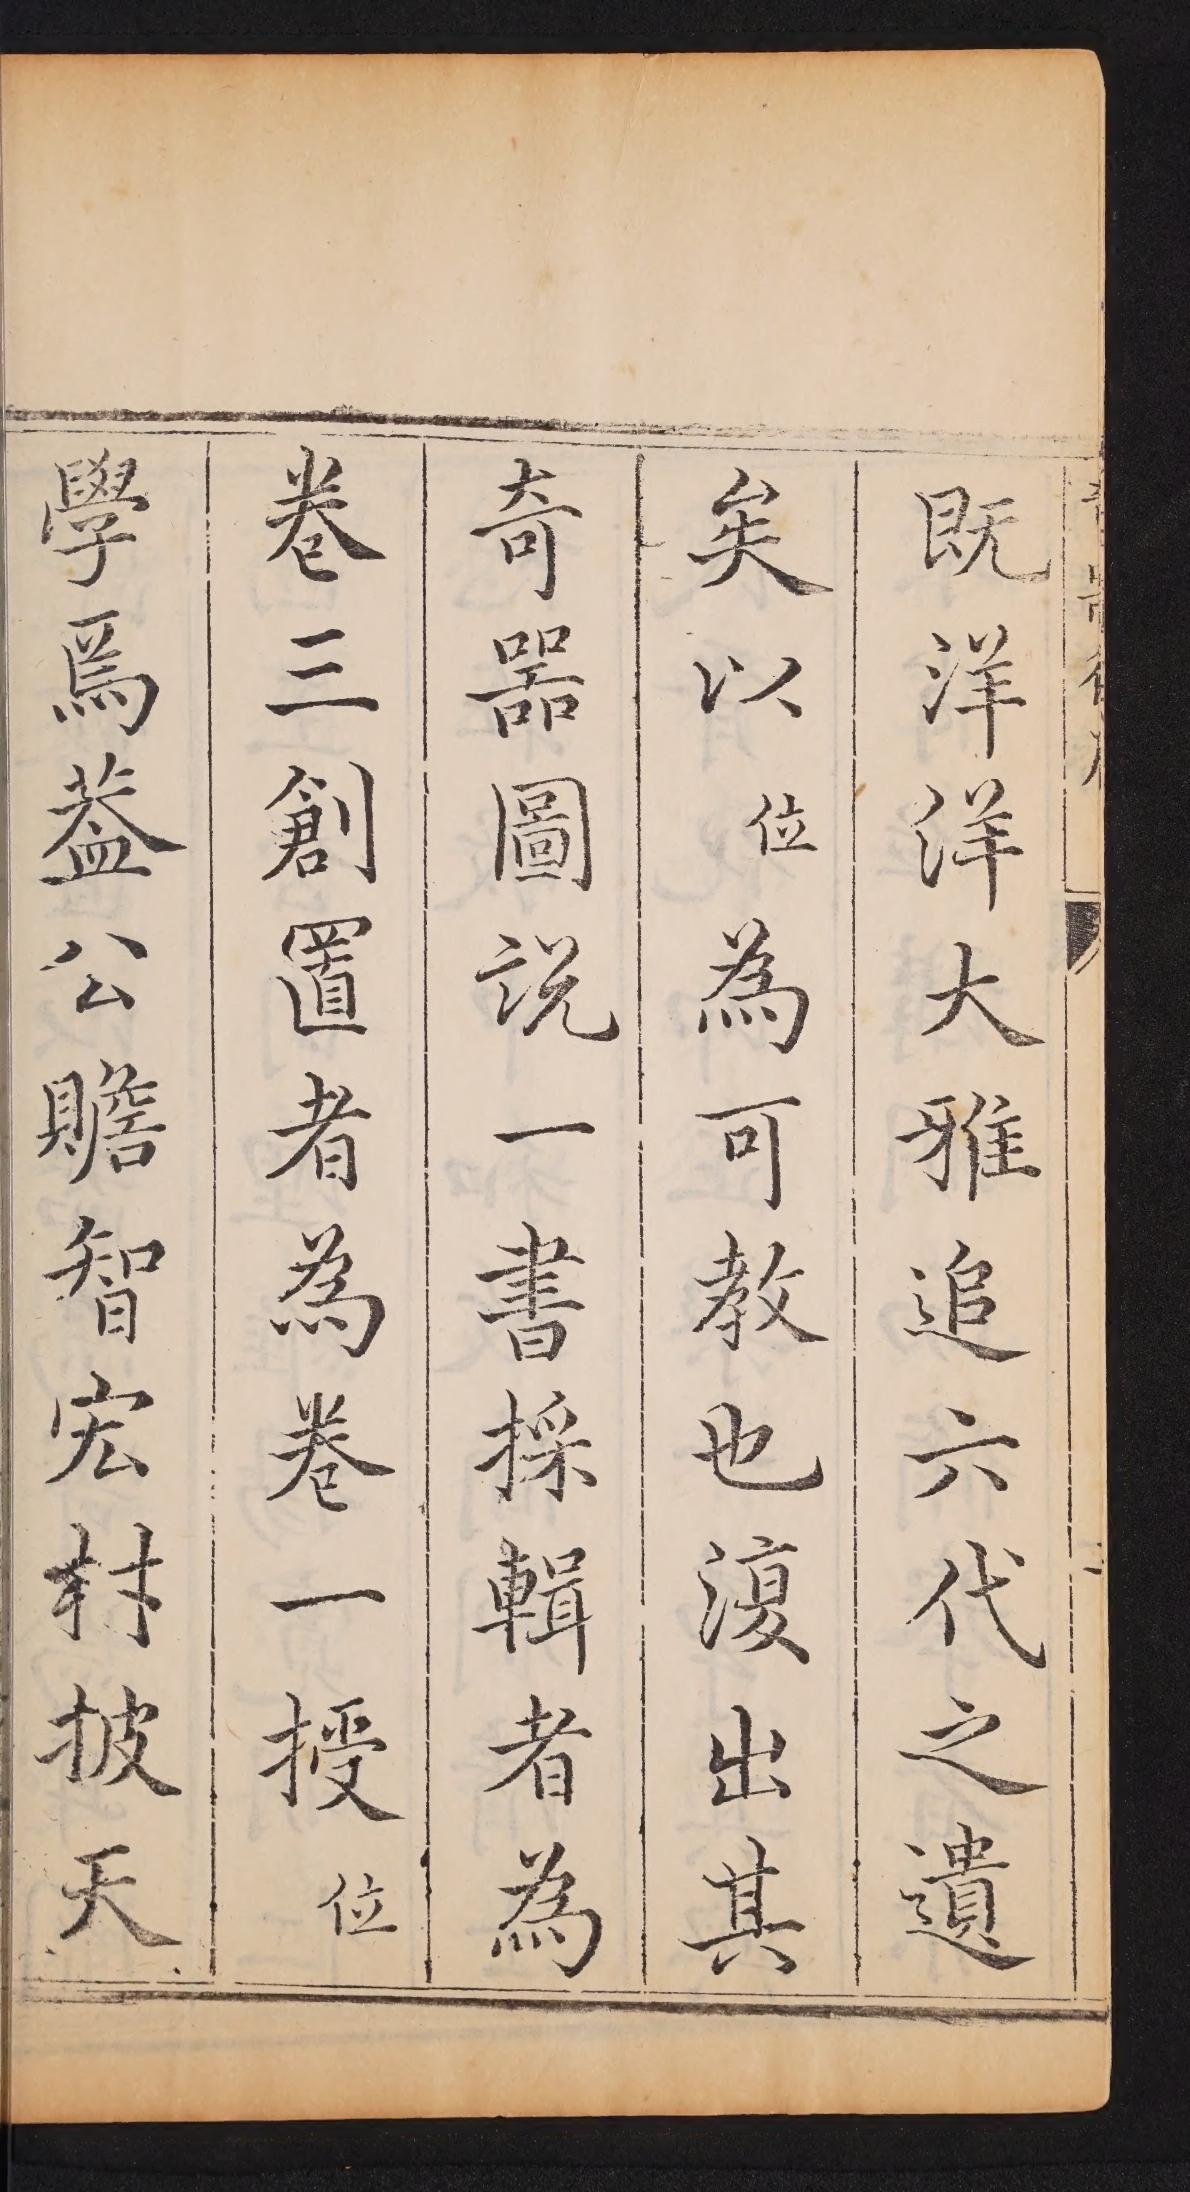 既洋洋大雅追六代之遺
矣以位為可教也復出其
奇器圖説一書採輯者為
卷三創置者為卷一授位
學焉葢公贍智宏材披天